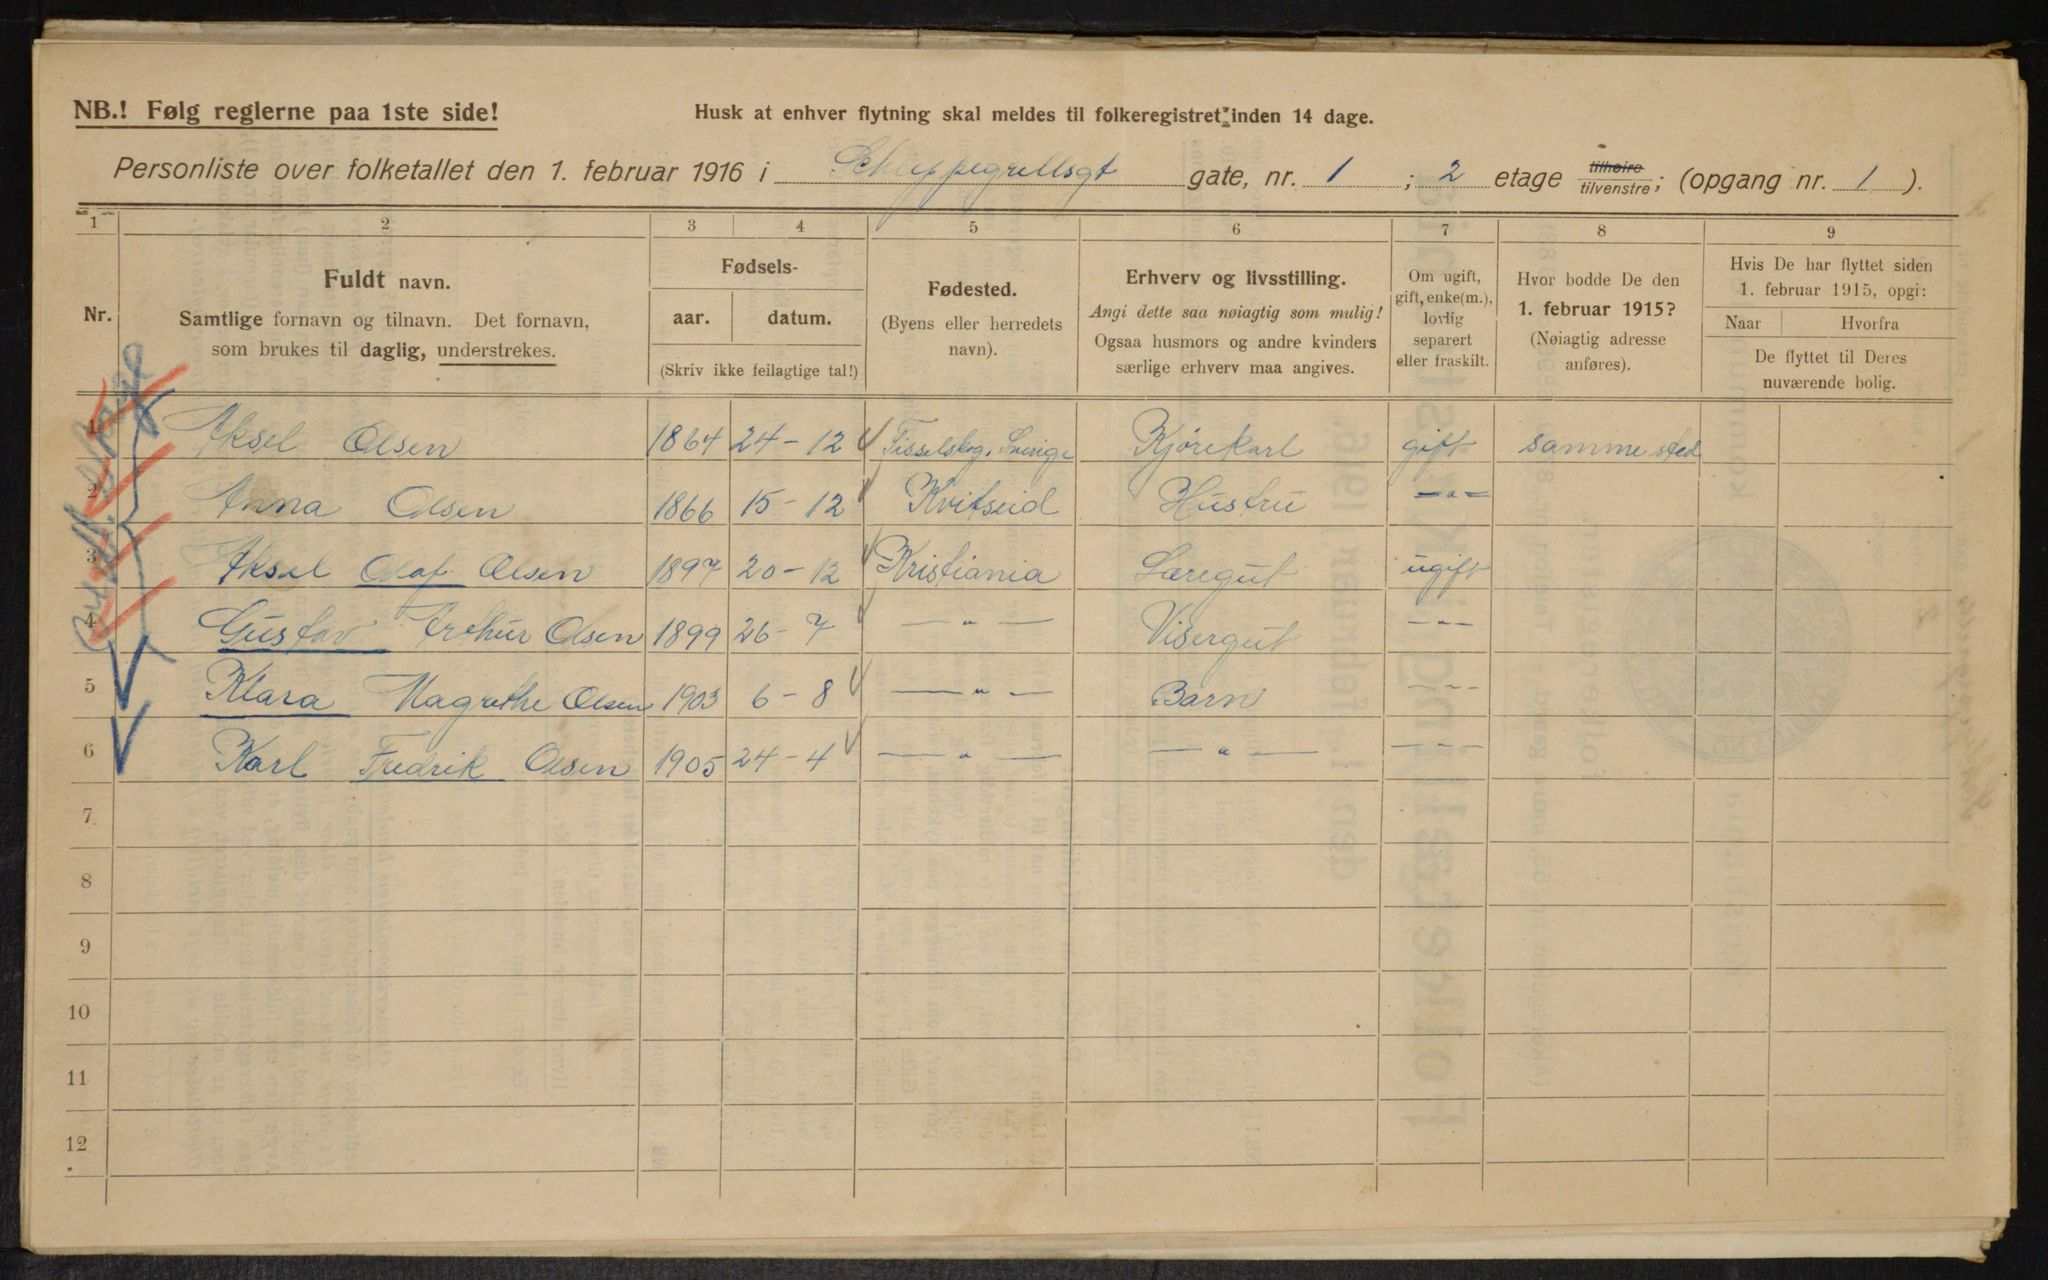 NB.! Følg reglerne paa 1ste side!
Husk at enhver flytning skal meldes til folkeregistret inden 14 dage.
Personliste over folketallet den 1. februar 1916 i Schleppegrellsgt gate, nr. 1 ; 2 etage tilhøire tilvenstre; (opgang nr. 1 ).
1 2 3 4 5 6 7 8 9
Nr.
Fuldt navn.
Samtlige fornavn og tilnavn. Det fornavn,
som brukes til daglig, understrekes.
Fødsels-
aar. datum.
(Skriv ikke feilagtige tal!)
Fødested.
(Byens eller herredets
navn).
Erhverv og livsstilling.
Angi dette saa nøiagtig som mulig!
Ogsaa husmors og andre kvinders
særlige erhverv maa angives.
Om ugift,
gift, enke(m.),
lovlig
separert
eller fraskilt.
Hvor bodde De den
1. februar 1915?
(Nøiagtig adresse
anføres).
Hvis De har flyttet siden
1. februar 1915, opgi:
Naar Hvorfra
De flyttet til Deres
nuværende bolig.
1 Aksel Olsen 1864 24-12 Tisselskog, Sverige Kjørekarl gift samme sted
2 Anna Olsen 1866 15-12 Kvitseid Hustru -"-
3 Aksel Olaf Olsen 1897 20-12 Kristiania Læregut ugift
4 Gustav Arthur Olsen 1899 26-7 -"- Visergut -"-
5 Klara Magrethe Olsen 1903 6-8 -"- Barn -"-
6 Karl Fredrik Olsen 1905 24-4 -"- -"- -"-
7
8
9
10
11
12